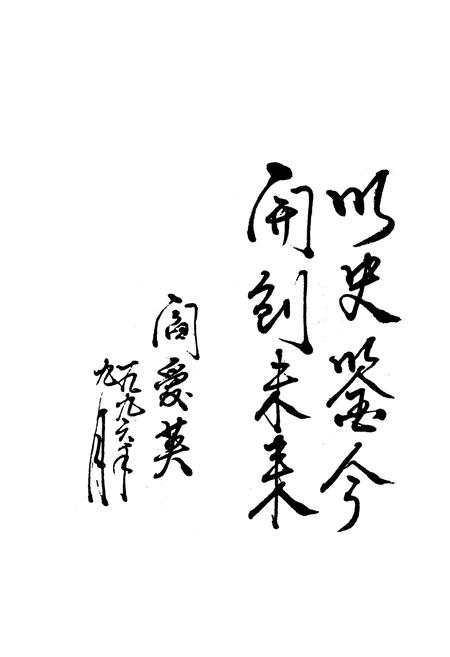 以史鉴今
开创未来
阎爱英
一九九六年
九月